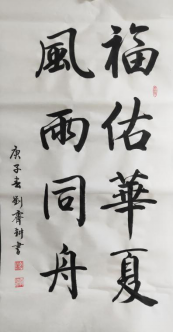 福佑華夏
風雨同舟
庚子春劉霽書